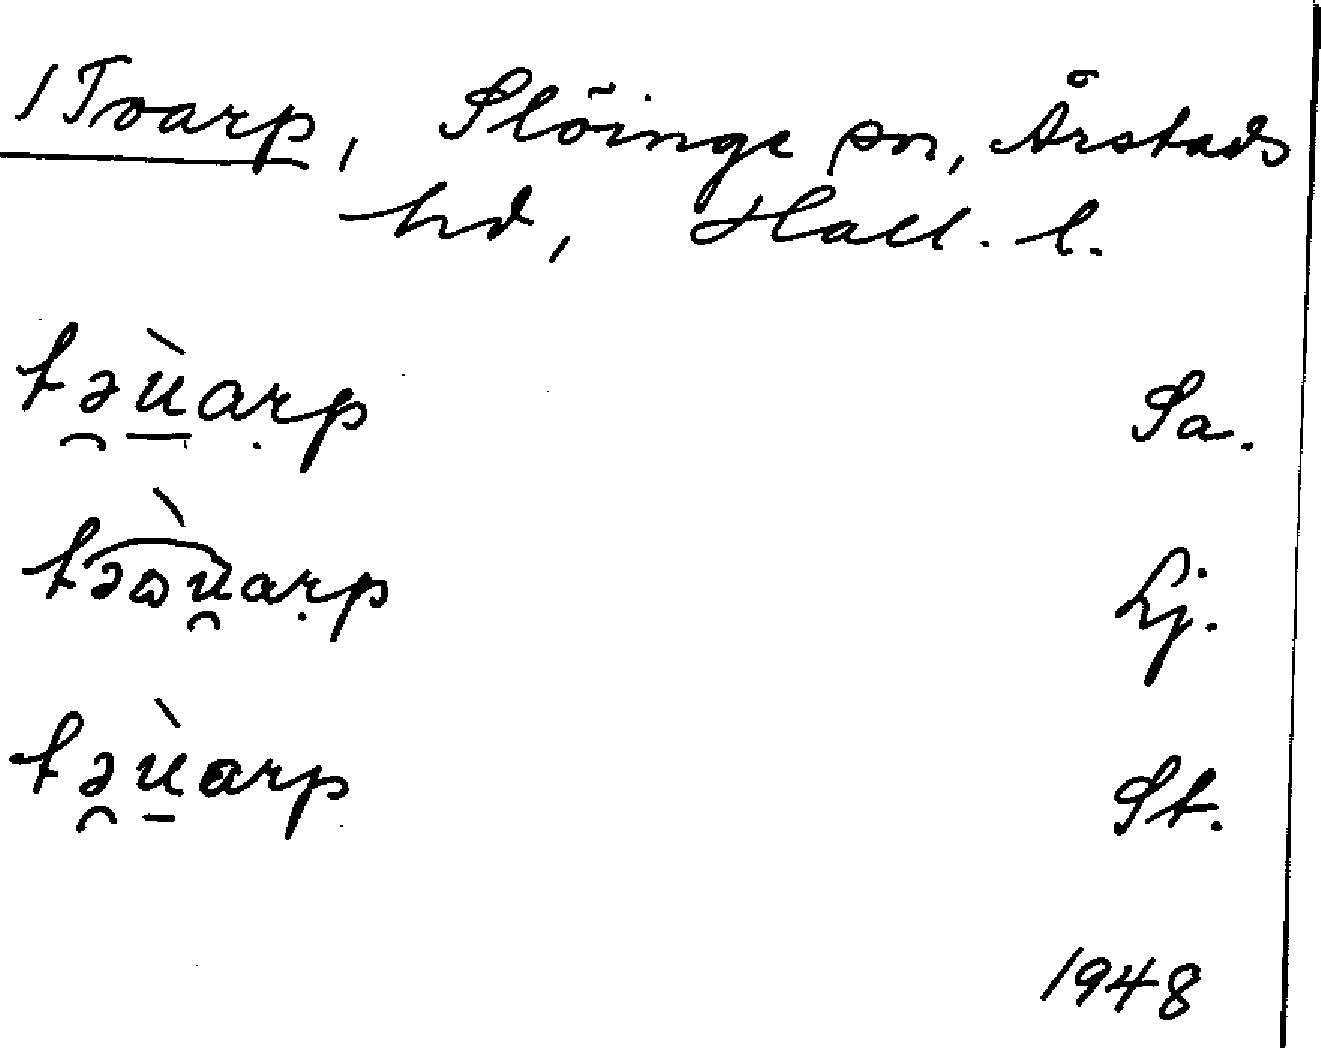 1 Tvarp, Slöinge sn, Årstads
hd, Hall. l.
tə̯ù̱arp Sa.
təωù̯arp Lj.
tə̯ù̱arp St.
1948